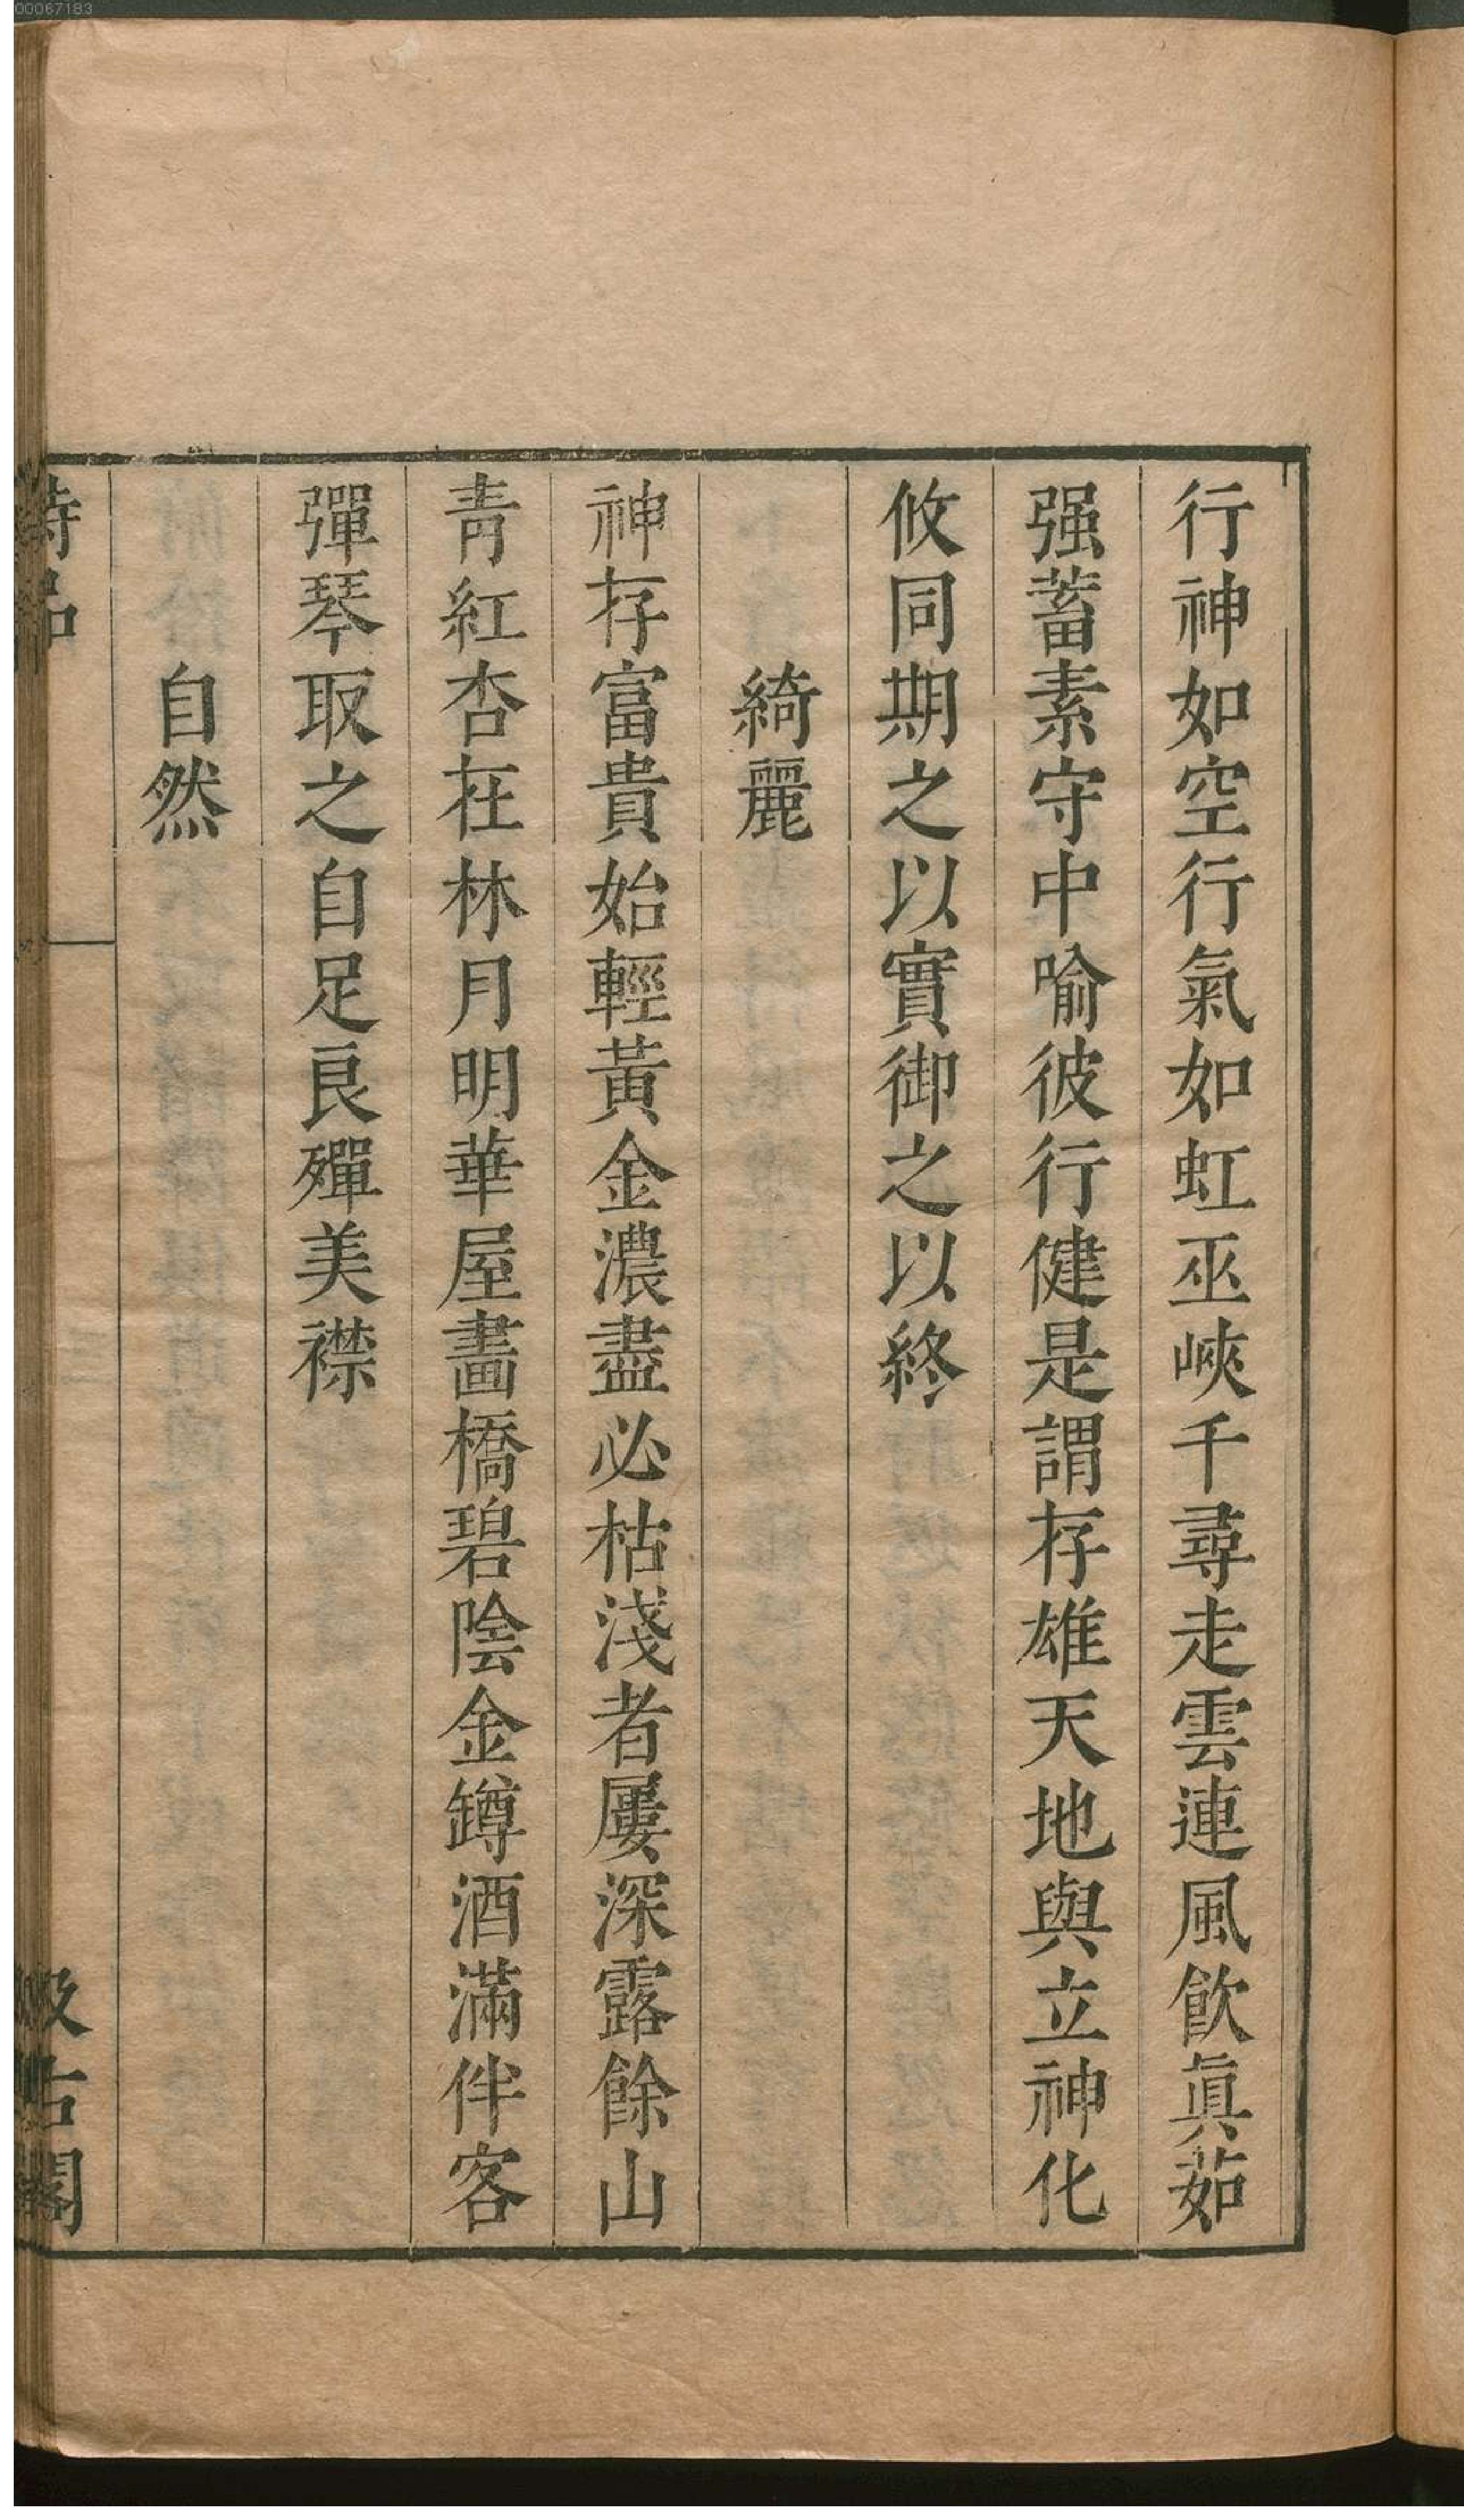 行神如空行氣如虹巫峽千尋走雲連風飲眞茹
强蓄素守中喻彼行健是謂存雄天地與立神化
攸同期之以實御之以終
綺麗
神存富貴始輕黃金濃盡必枯淺者屢深露餘山
靑紅杏在林月明華屋畵橋碧陰金罇酒滿伴客
彈琴取之自足良殫美襟
自然
詩品
汲古閣
00067183